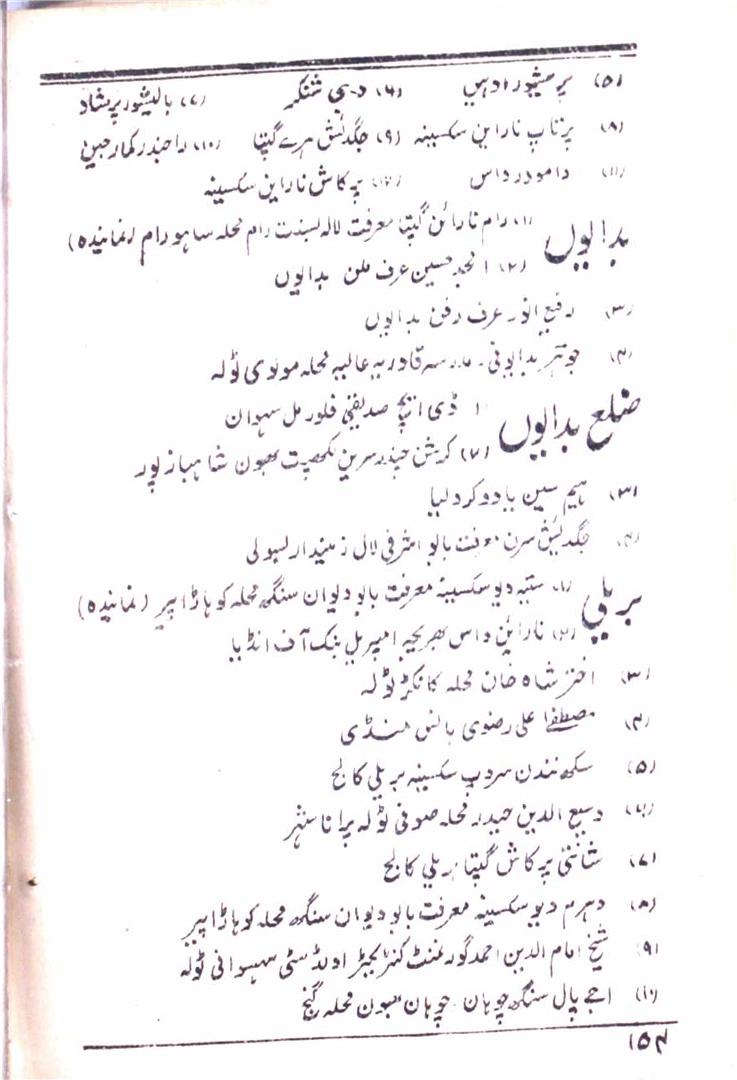 (۵) پرمیشور ادہین (۶) د۔ی شنکر (۷) بالیشور پرشاد
(۸) پرتاپ نارابن سکسینہ (۹) جگدیش سرے گپتا (۱۰) راجندر کمار جین
(۱۱) دامودر داس (۱۲) پرکاش نارابن سکسینہ
بدایوں (۱) رام نارائن گپتا معرفت لالہ بسنت رام محلہ ساہو رام (نمائیندہ)
(۲) احمد حسین عرف ملن بدایوں
(۳) رفیع الدر عرف رفن بدایوں
(۴) جوہر بدایونی۔ مدرسہ قادریہ عالیہ محلہ مولوی ٹولہ
ضلع بدایوں ۱ ڈی ایچ صدیقی فلور مل سہسوان
(۲) کرشن چندر سرین لکھپت بھون شاہباز پور
(۳) ہیم سین یادو کردلیا
(۴) جگدیش سرن معرفت بابو اشرفی لال زمیندار بسولی
بریلی (۱) ستیہ دیو سکسینہ معرفت بابو دیوان سنگھ محلہ کوہاڑا پیر (نمائیندہ)
(۲) نارائن داس بھریجہ امپیریل بنک آف انڈیا
(۳) اختر شاہ خان محلہ کانکڑ ٹولہ
(۴) مصطفےٰ علی رضوی بانس منڈی
(۵) سکھ نندن سروپ سکسینہ بریلی کالج
(۶) وسیع الدین حیدر محلہ صوفی ٹولہ پرانا شہر
(۷) شانتی پرکاش گپتا بریلی کالج
(۸) دہرم دیو سکسینہ معرفت بابو دیوان سنگھ محلہ کوہاڑا پیر
(۹) شیخ امام الدین احمد گورنمنٹ کنٹریکٹر اولڈ سٹی سہسوانی ٹولہ
(۱۰) اجے پال سنگھ چوہان۔ چوہان بھون محلہ گنج
۱۵۴